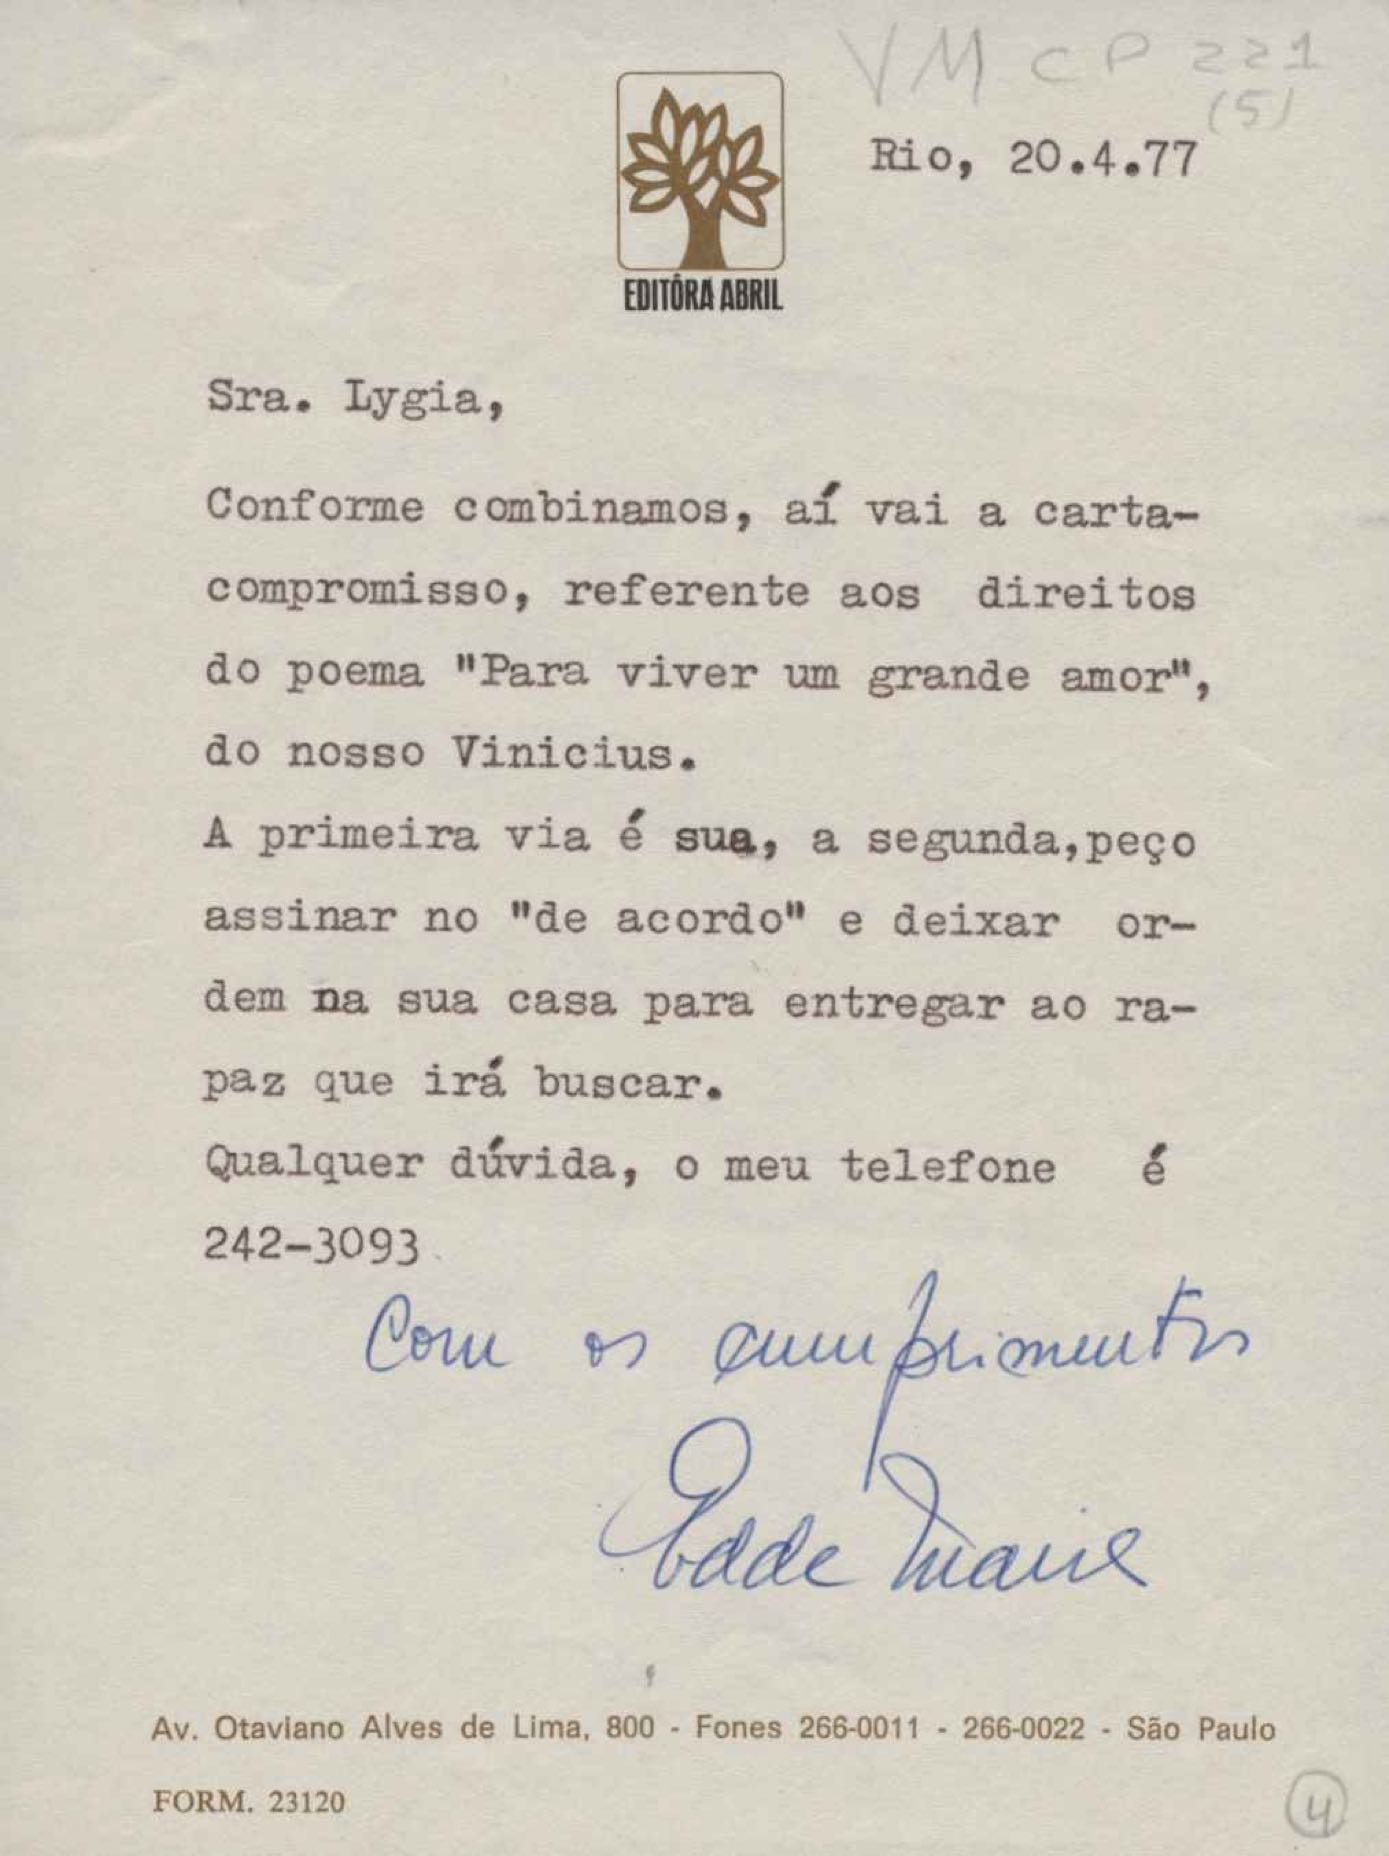 VM CP 221
(5)
Rio, 20.4.77
EDITÔRA ABRIL
Sra. Lygia,
Conforme combinamos, aí vai a carta-
compromisso, referente aos direitos
do poema "Para viver um grande amor",
do nosso Vinicius.
A primeira via é sua, a segunda,peço
assinar no "de acordo" e deixar or-
dem na sua casa para entregar ao ra-
paz que irá buscar.
Qualquer dúvida, o meu telefone é
242-3093
Com os cumprimentos
Edde Marie
Av. Otaviano Alves de Lima, 800 - Fones 266-0011 - 266-0022 - São Paulo
FORM. 23120
4